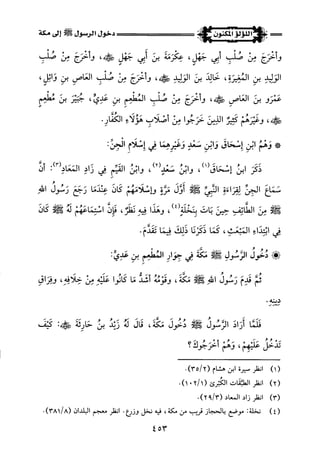 اللؤلؤ المكنون
دخول الرسول ﷺ إلى مكة
وأَخْرَجَ مِنْ صُلْبِ أَبِي جَهْلٍ، عِكْرِمَةَ بنَ أَبِي جَهْلٍ ﷺ، وأَخْرَجَ مِنْ صُلْبِ
الوَلِيدِ بنِ المُغِيرَةِ، خَالِدَ بنَ الوَلِيدِ ﷺ، وأَخْرَجَ مِنْ صُلْبِ العَاصِ بنِ وَائِلٍ،
عَمْرَو بنَ العَاصِ ﷺ، وأَخْرَجَ مِنْ صُلْبِ المُطْعِمِ بنِ عَدِيٍّ، جُبَيْرَ بنَ مُطْعِمٍ
ﷺ، وغَيْرُهُمْ كَثِيرٌ الذِينَ خَرَجُوا مِنْ أَصْلَابِ هَؤُلَاءِ الكُفَّارِ.
* وَهْمُ ابْنِ إِسْحَاقَ وَابْنِ سَعْدٍ وَغَيْرِهِمَا فِي إِسْلَامِ الْجِنِّ:
ذَكَرَ ابْنُ إِسْحَاقَ(١)، وابْنُ سَعْدٍ(٢)، وابْنُ القَيِّمِ فِي زَادِ المَعَادِ(٣): أَنَّ
سَمَاعَ الجِنِّ لِقِرَاءَةِ النَّبِيِّ ﷺ أَوَّلَ مَرَّةٍ وإِسْلَامَهُمْ كَانَ عِنْدَمَا رَجَعَ رَسُولُ اللهِ
ﷺ مِنَ الطَّائِفِ حِينَ بَاتَ بِنَخْلَةٍ(٤)، وهَذَا فِيهِ نَظَرٌ، فَإِنَّ اسْتِمَاعَهُمْ لَهُ ﷺ كَانَ
فِي ابْتِدَاءِ المَبْعَثِ، كَمَا ذَكَرْنَا ذَلِكَ فِيمَا تَقَدَّمَ.
* دُخُولُ الرَّسُولِ ﷺ مَكَّةَ فِي جِوَارِ المُطْعِمِ بنِ عَدِيٍّ:
ثُمَّ قَدِمَ رَسُولُ اللهِ ﷺ مَكَّةَ، وقَوْمُهُ أَشَدُّ مَا كَانُوا عَلَيْهِ مِنْ خِلَافِهِ، وفِرَاقِ
دِينِهِ.
فَلَمَّا أَرَادَ الرَّسُولُ ﷺ دُخُولَ مَكَّةَ، قَالَ لَهُ زَيْدُ بنُ حَارِثَةَ ﷺ: كَيْفَ
تَدْخُلُ عَلَيْهِمْ، وَهُمْ أَخْرَجُوكَ؟
(١) انظر سيرة ابن هشام (٣٥/٢).
(٢) انظر الطَّبَقَات الكُبْرَى (١٠٢/١).
(٣) انظر زاد المعاد (٢٩/٣).
(٤) نخلة: موضع بالحجاز قريب من مكة، فيه نخل وزرع. انظر معجم البلدان (٣٨١/٨).
٤٥٣